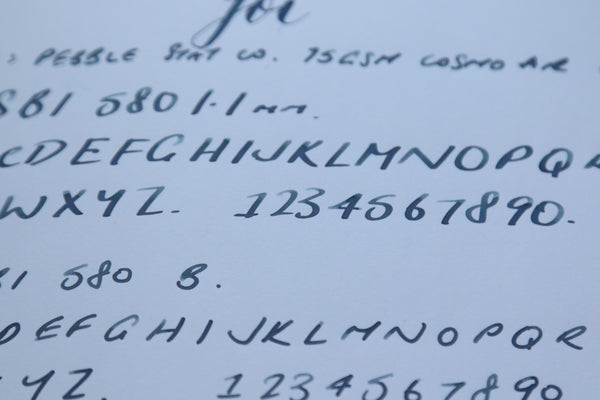 for
PEBBLE STAT CO. 75GSM COSMO AIR
SBI 580 1.1mm.
CDEFGHIJKLMNOPQR
WXYZ. 1234567890.
BI 580 B.
DEFGHIJKLMNOPQR
YYZ. 1234567890